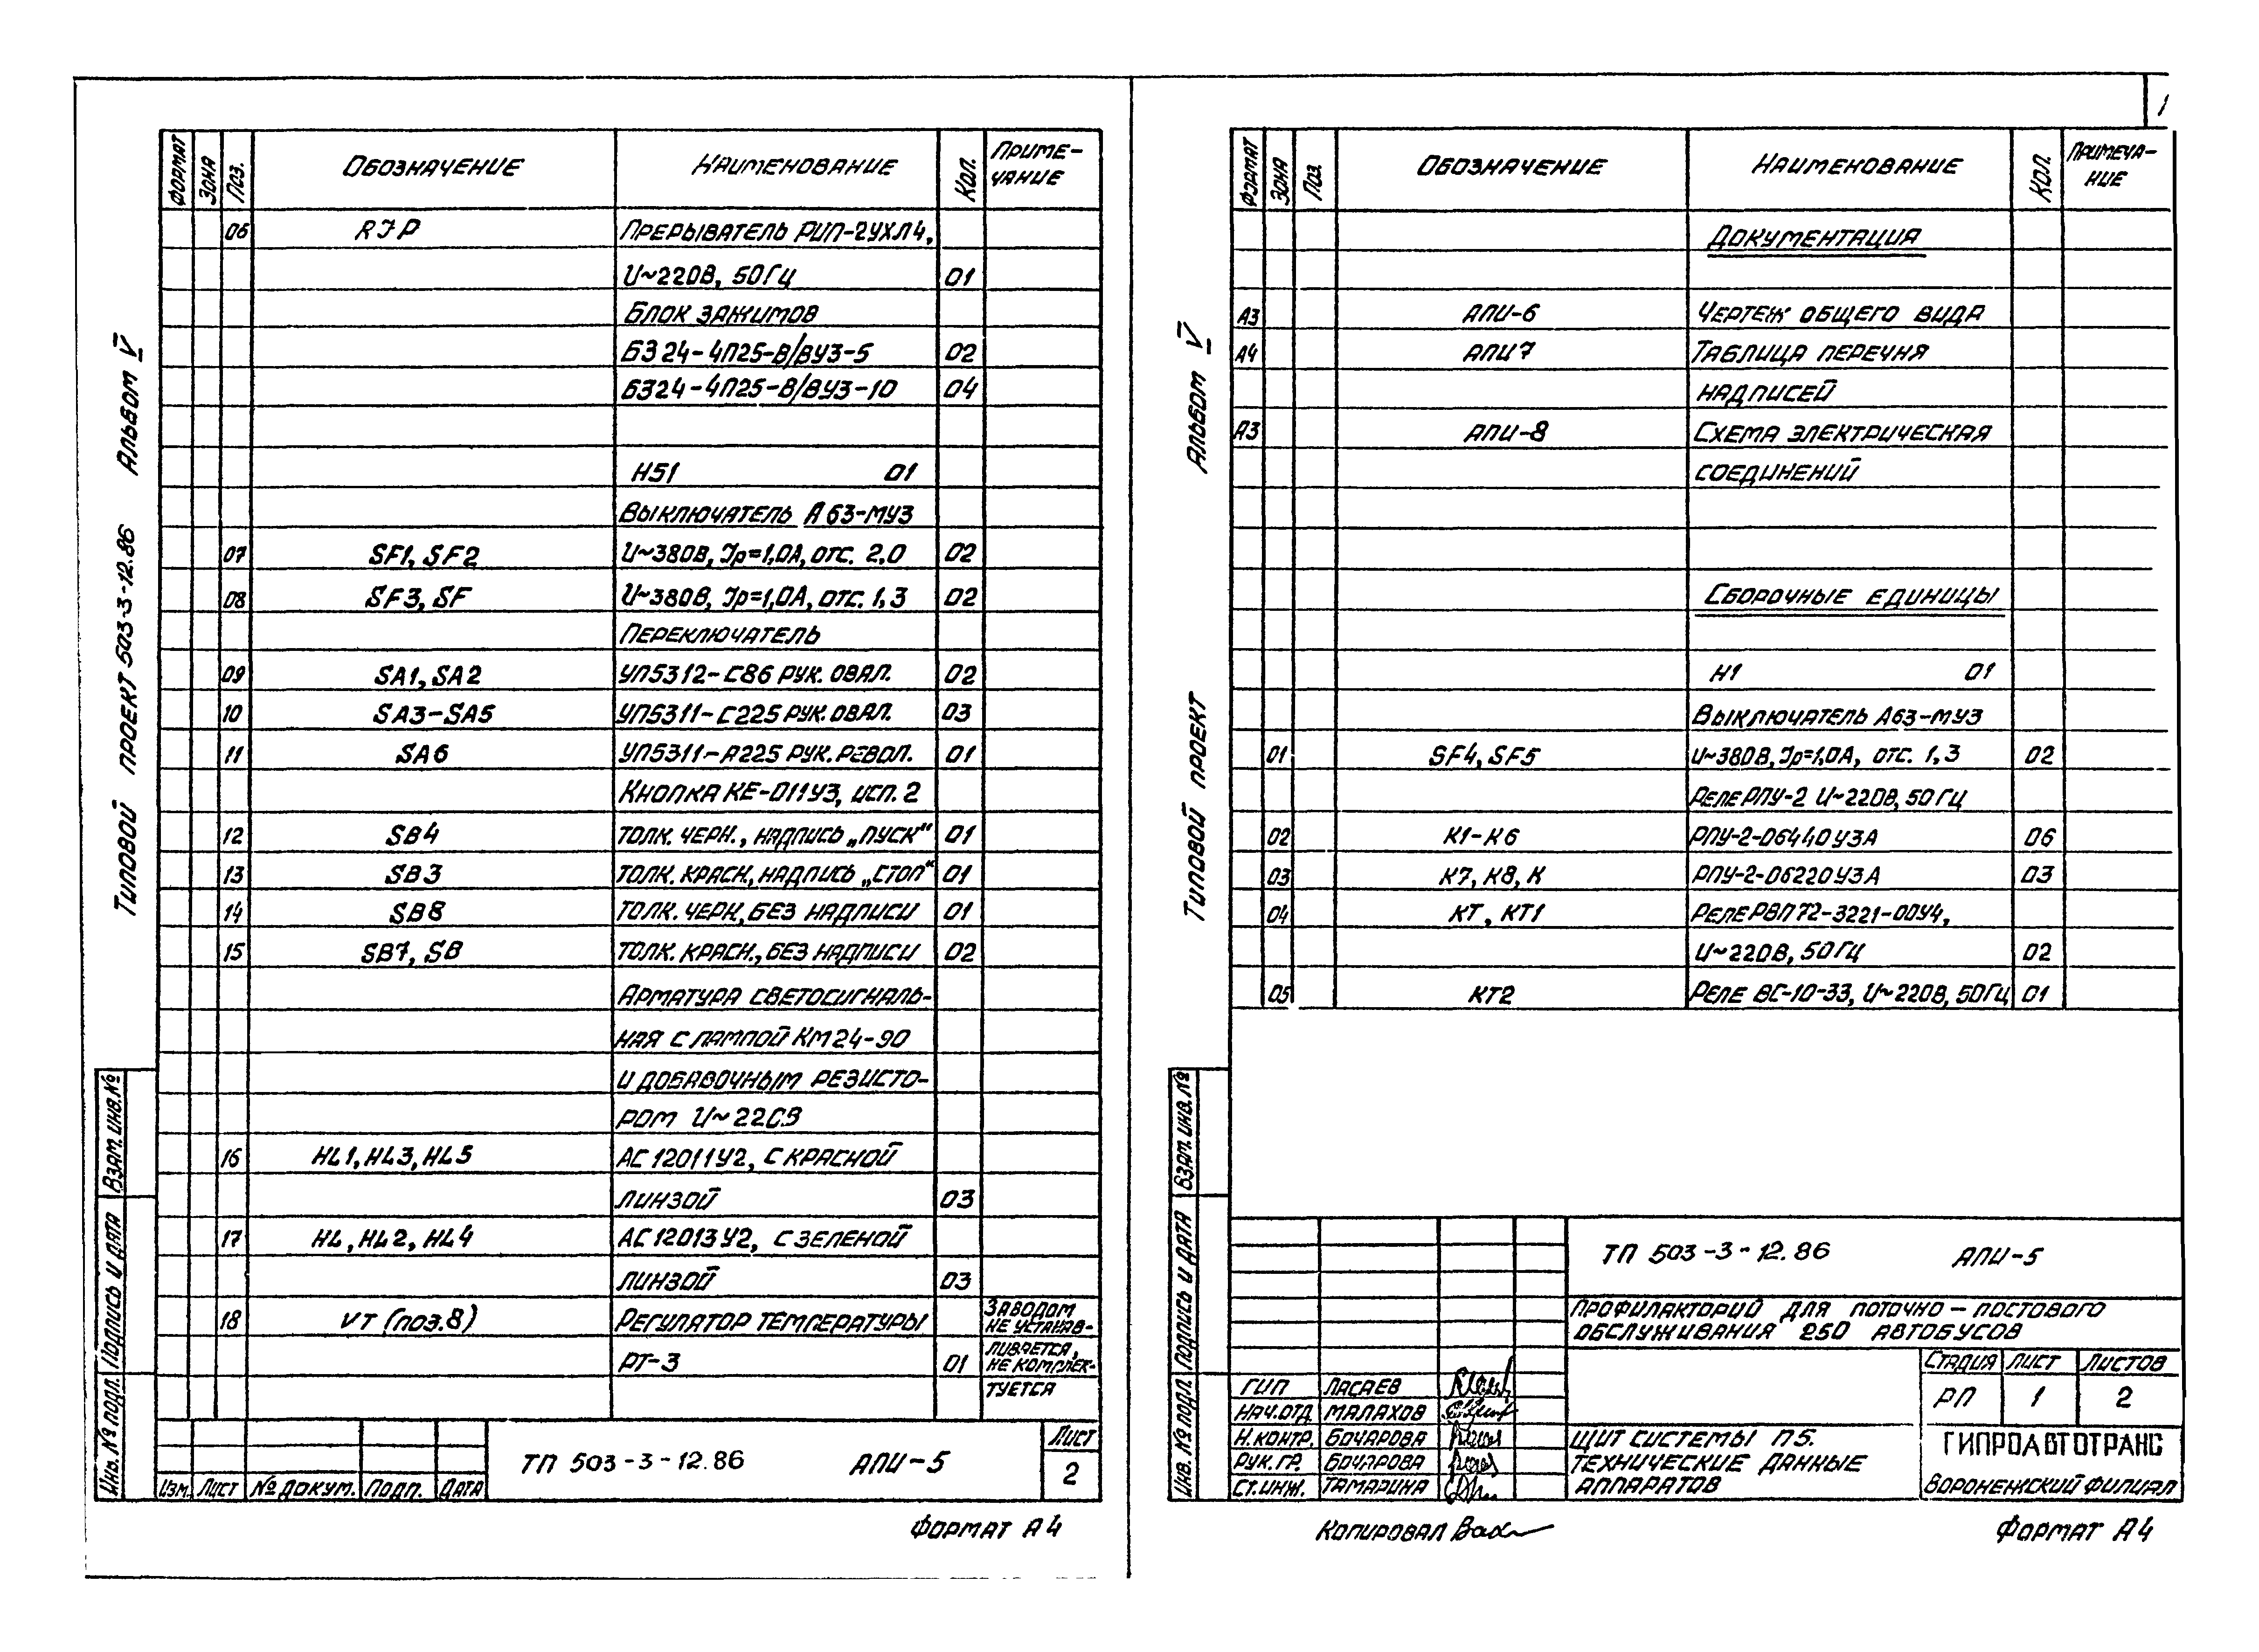 ФОРМАТ ЗОНА ПОЗ. ОБОЗНАЧЕНИЕ НАИМЕНОВАНИЕ КОЛ. ПРИМЕ-
ЧАНИЕ
06 RJP ПРЕРЫВАТЕЛЬ РИП-2УХЛ4,
U~220В, 50ГЦ 01
БЛОК ЗАЖИМОВ
БЗ 24-4П25-В/ВУЗ-5 02
БЗ24-4П25-В/ВУЗ-10 04
Н51 01
ВЫКЛЮЧАТЕЛЬ А63-МУЗ
07 SF1, SF2 U~380В, Jр=1,0А, ОТС. 2,0 02
08 SF3, SF U~380В, Jр=1,0А, ОТС. 1,3 02
ПЕРЕКЛЮЧАТЕЛЬ
09 SA1, SA2 УП5312-С86 РУК. ОВАЛ. 02
10 SA3-SA5 УП5311-С225 РУК. ОВАЛ. 03
11 SA6 УП5311-А225 РУК. РЕВОЛ. 01
КНОПКА КЕ-011У3, ИСП. 2
12 SB4 ТОЛК. ЧЕРН., НАДПИСЬ „ПУСК“ 01
13 SB3 ТОЛК. КРАСН, НАДПИСЬ „СТОП“ 01
14 SB8 ТОЛК. ЧЕРН, БЕЗ НАДПИСИ 01
15 SB7, SB ТОЛК. КРАСН., БЕЗ НАДПИСИ 02
АРМАТУРА СВЕТОСИГНАЛЬ-
НАЯ С ЛАМПОЙ КМ 24-90
И ДОБАВОЧНЫМ РЕЗИСТО-
РОМ U~220В
16 HL1, HL3, HL5 АС 12011У2, С КРАСНОЙ
ЛИНЗОЙ 03
17 HL, HL2, HL4 АС 12013У2, С ЗЕЛЕНОЙ
ЛИНЗОЙ 03
18 VT (ПОЗ.8) РЕГУЛЯТОР ТЕМПЕРАТУРЫ ЗАВОДОМ
НЕ УСТАНАВ-
РТ-3 01 ЛИВАЕТСЯ,
НЕ КОМПЛЕК-
ТУЕТСЯ
ТИПОВОЙ ПРОЕКТ 503-3-12.86 АЛЬБОМ V
ИНВ. № ПОДЛ. ПОДПИСЬ И ДАТА ВЗАМ. ИНВ. №
ИЗМ. ЛИСТ № ДОКУМ. ПОДП. ДАТА
ТП 503-3-12.86 АПИ-5
ЛИСТ
2
ФОРМАТ А4
1
ФОРМАТ ЗОНА ПОЗ. ОБОЗНАЧЕНИЕ НАИМЕНОВАНИЕ КОЛ. ПРИМЕЧА-
НИЕ
ДОКУМЕНТАЦИЯ
А3 АПИ-6 ЧЕРТЕЖ ОБЩЕГО ВИДА
А4 АПИ7 ТАБЛИЦА ПЕРЕЧНЯ
НАДПИСЕЙ
А3 АПИ-8 СХЕМА ЭЛЕКТРИЧЕСКАЯ
СОЕДИНЕНИЙ
СБОРОЧНЫЕ ЕДИНИЦЫ
Н1 01
ВЫКЛЮЧАТЕЛЬ А63-МУЗ
01 SF4, SF5 U~380В, Jр=1,0А, ОТС. 1,3 02
РЕЛЕ РПУ-2 U~220В, 50ГЦ
02 К1-К6 РПУ-2-06440У3А 06
03 К7, К8, К РПУ-2-06220У3А 03
04 КТ, КТ1 РЕЛЕ РВП72-3221-00У4,
U~220В, 50ГЦ 02
05 КТ2 РЕЛЕ ВС-10-33, U~220В, 50ГЦ 01
ТИПОВОЙ ПРОЕКТ АЛЬБОМ V
ИНВ. № ПОДЛ. ПОДПИСЬ И ДАТА ВЗАМ. ИНВ. №
ТП 503-3-12.86 АПИ-5
ПРОФИЛАКТОРИЙ ДЛЯ ПОТОЧНО-ПОСТОВОГО
ОБСЛУЖИВАНИЯ 250 АВТОБУСОВ
СТАДИЯ ЛИСТ ЛИСТОВ
РП 1 2
ГИП ЛАСАЕВ
НАЧ.ОТД МАЛАХОВ
Н.КОНТР. БОЧАРОВА
РУК.ГР. БОЧАРОВА
СТ.ИНЖ. ТАМАРИНА
ЩИТ СИСТЕМЫ П5.
ТЕХНИЧЕСКИЕ ДАННЫЕ
АППАРАТОВ
ГИПРОАВТОТРАНС
ВОРОНЕЖСКИЙ ФИЛИАЛ
КОПИРОВАЛ
ФОРМАТ А4